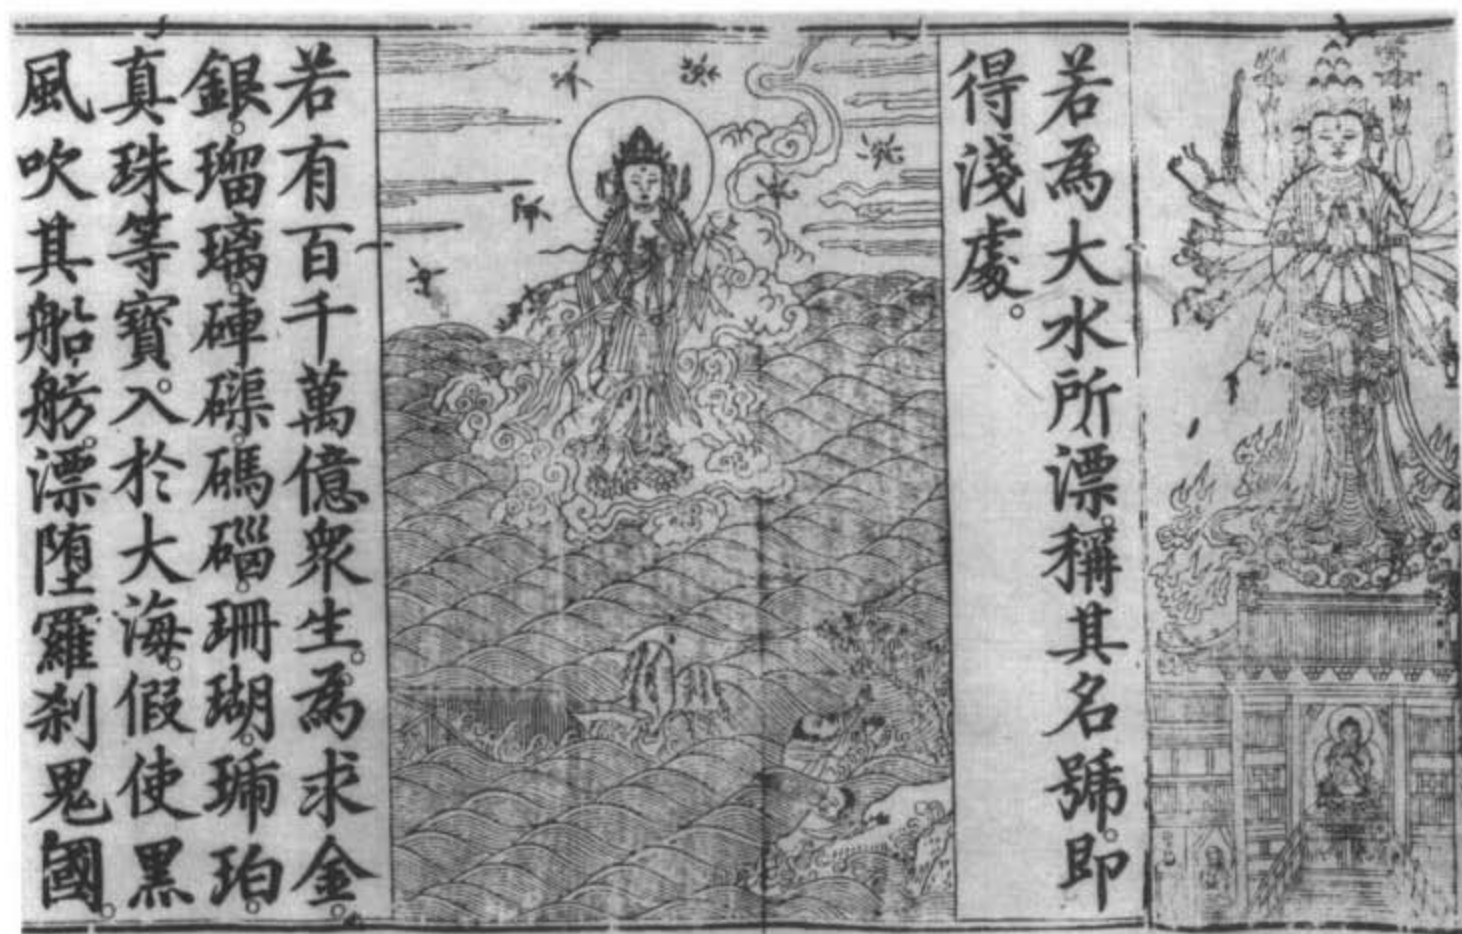 若為大水所漂。稱其名號。即
得淺處。
若有百千萬億眾生。為求金。
銀。瑠璃。硨磲。碼碯。珊瑚。琥珀。
真珠等寶。入於大海。假使黑
風吹其船舫。漂堕羅刹鬼國。